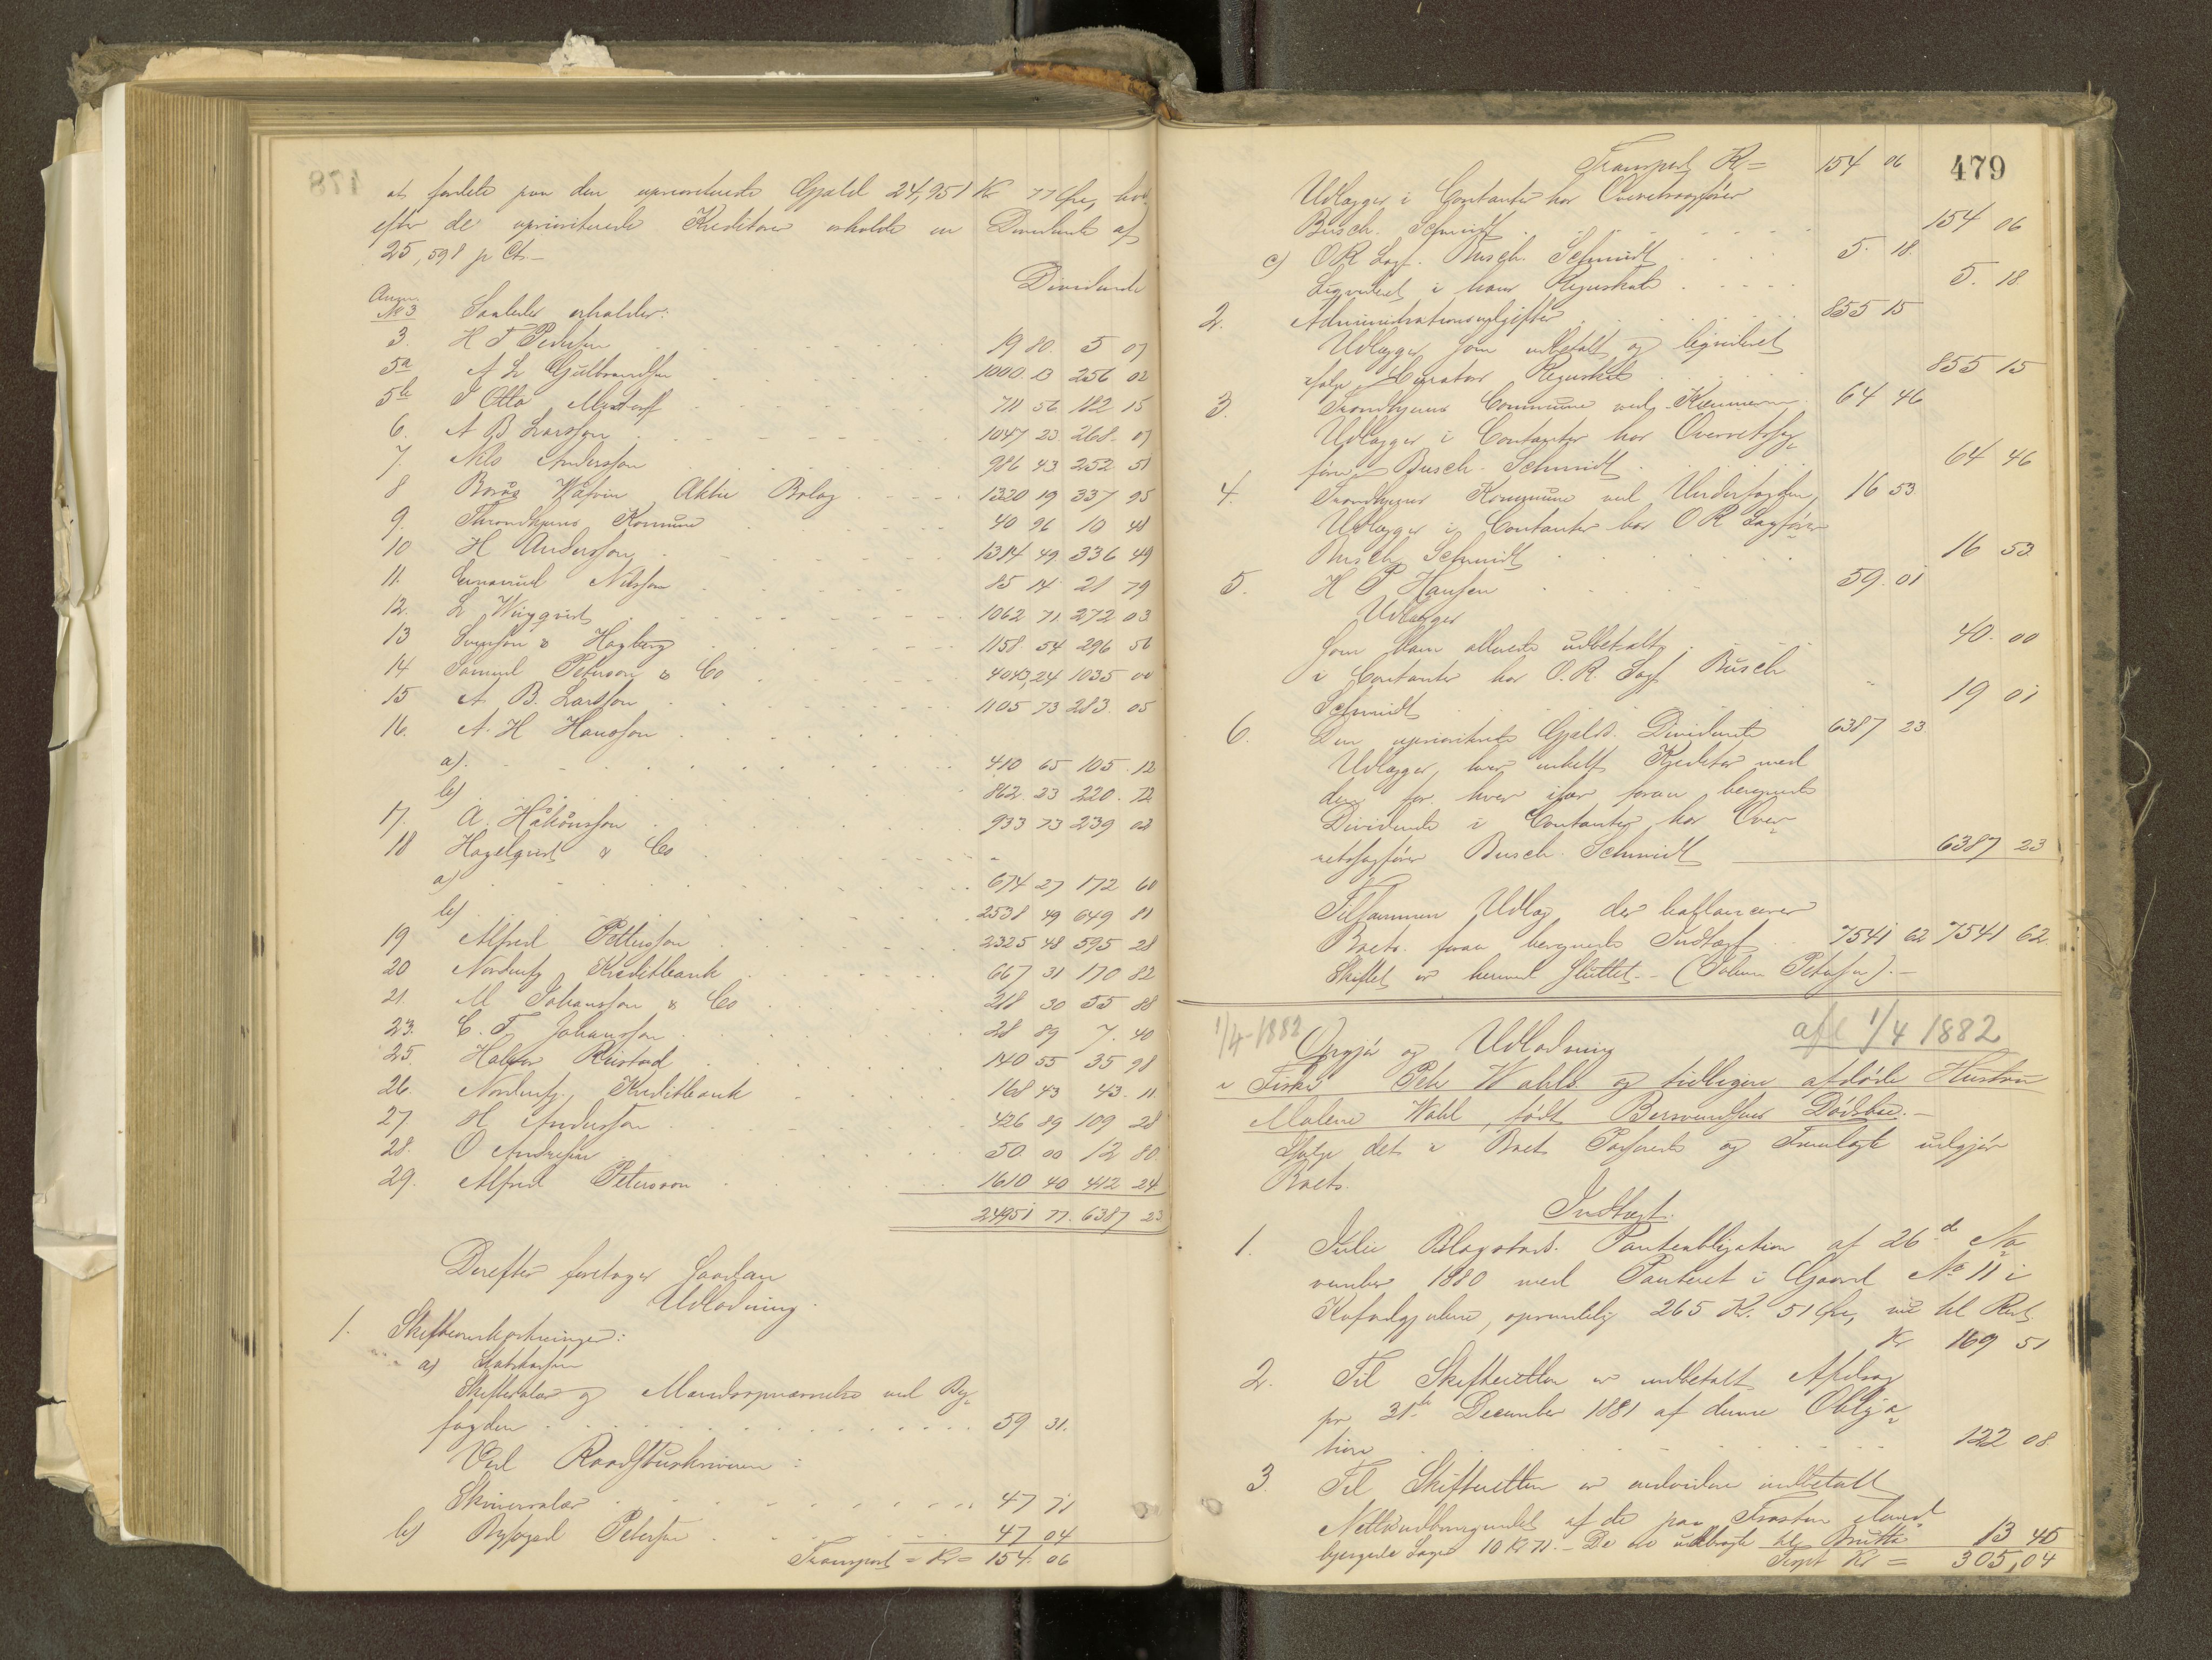 at fordele paa den uprioriterede Gjæld 24,951 Kr 77 Øre, hvor-
efter de uprioriterede Kreditorer erholde en Dividende af
25,598 p Ct.-
Dividende
Anm.
No 3 Saaledes erholder:
3. H F Pedersen 19 80. 5 07
5a A L Gulbrandsen 1000 13 256 02
5b J Otto 711 56 182 15
6. A B Larsson 1047 23 268. 07
7. Nils Andersson 986 43 252 51
8 Borås Wäfveri Aktie Bolag 1320 19 337 95
9. Throndhjems Komune 40 96 10 48
10 H Andersson 1314 49 336 49
11. Emanuel Nilsson 85 14 21 79
12. L Wingqvist 1062 71. 272 03
13 Svensson & Hagberg 1158. 54 296 56
14 Samuel Peterson & Co 4043,24 1035 00
15 A B. Larsson 1105 73 283. 05
16. A. H Hansson
a). 410 65 105. 12
b) 862. 23 220. 72
17. A. Håkånsson 933 73 239 02
18 Hagelqvist & Co
a) 674 27 172 60
b) 2538 49 649 81
19 Alfred Pettersson 2325 48 595 28
20 Nordenfj. Kreditbank 667 31 170 82
21. M Johansson & Co 218 30 55 88
23. C. F. Johansson 28 89 7. 40
25. Halvor Reistad 140 55 35 98
26. Nordenfj. Kreditbank 168 43 43. 11
27. H Andersson 426 89 109 28
28. O Andresen 50 00 12 80
29. Alfred Peterson 1610 40 412 24
24951 77. 6387 23
Derefter foretages saadan
Udlodning.
1. Skifteomkostninger:
a) Statskassen
Skiftesalær og Mandsopnævnelse ved By-
fogden 59 31.
Ved Raadstueskriveren:
Skriversalær 47 71
b) Byfoged Petersen 47 04
Transport = Kr = 154. 06
479
Transport Kr = 154 06
Udlægges i Contanter hos Overretssagfører
Busch. Schmidt 154 06
c) O R Sagf. Busch. Schmidt 5. 18.
Liqvideret i hans Regnskab 5. 18
2. Administrationsudgifter 855 15
Udlægges som udbetalt og liqvideret
ifølge Curators Regnskab 855 15
3. Trondhjems Commune ved Kæmneren 64 46
Udlægges i Contanter hos Overretssag-
fører Busch. Schmidt 64 46
4. Trondhjems Kommune ved Underfogden 16 53.
Udlægges i Contanter hos O R Sagfører
Busch Schmidt 16 53
5. H P Hansen 59. 01
Udlægges
Som ham allerede udbetalt 40. 00
i Contanter hos O. R. Sagf Busch
Schmidt 19 01
6. Den uprioriterede Gjælds Dividende 6387 23.
Udlægges, hver enkelt Kreditor med
den for hver især foran beregnede
Dividende i Contanter hos Over-
retssagfører Busch. Schmidt 6387 23
Tilsammen Udlæg, der ballancerer
Boets foran beregnede Indtægt 7541 62 7541 62.
Skiftet er hermed sluttet. - (Johan Petersen). -
1/4-1882
afl 1/4 1882
Opgjør og Udlodning
i Fisker Peter Wahls og tidligere afdøde Hustru
Malene Wahl, født Bersvendsens Dødsbo. -
Ifølge det i Boet Passerede og Fremlagte udgjør
Boets.
Indtægt.
1. Julie Blagstads Panteobligation af 26de No-
vember 1880 med Panteret i Gaard No 11 i
oprindelig 265 Kr. 51 Øre, nu til Rest
Kr 169 51
2. Til Skifteretten er indbetalt Afdrag
pr 31te December 1881 af denne Obliga-
tion 122 08
3. Til Skifteretten er endvidere indbetalt
Nettoudbringendet af de paa
Sager 10 Kr 71. - De ere udbragte til Brutto 13 45
Trspt Kr = 305,04